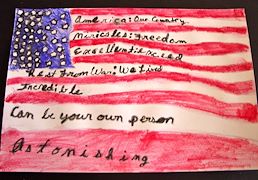 America: Our Country
Miricles: Freedom
Excellent: Exceed
Rest From War: We Lived
Incredible
Can be your own person
Astonishing